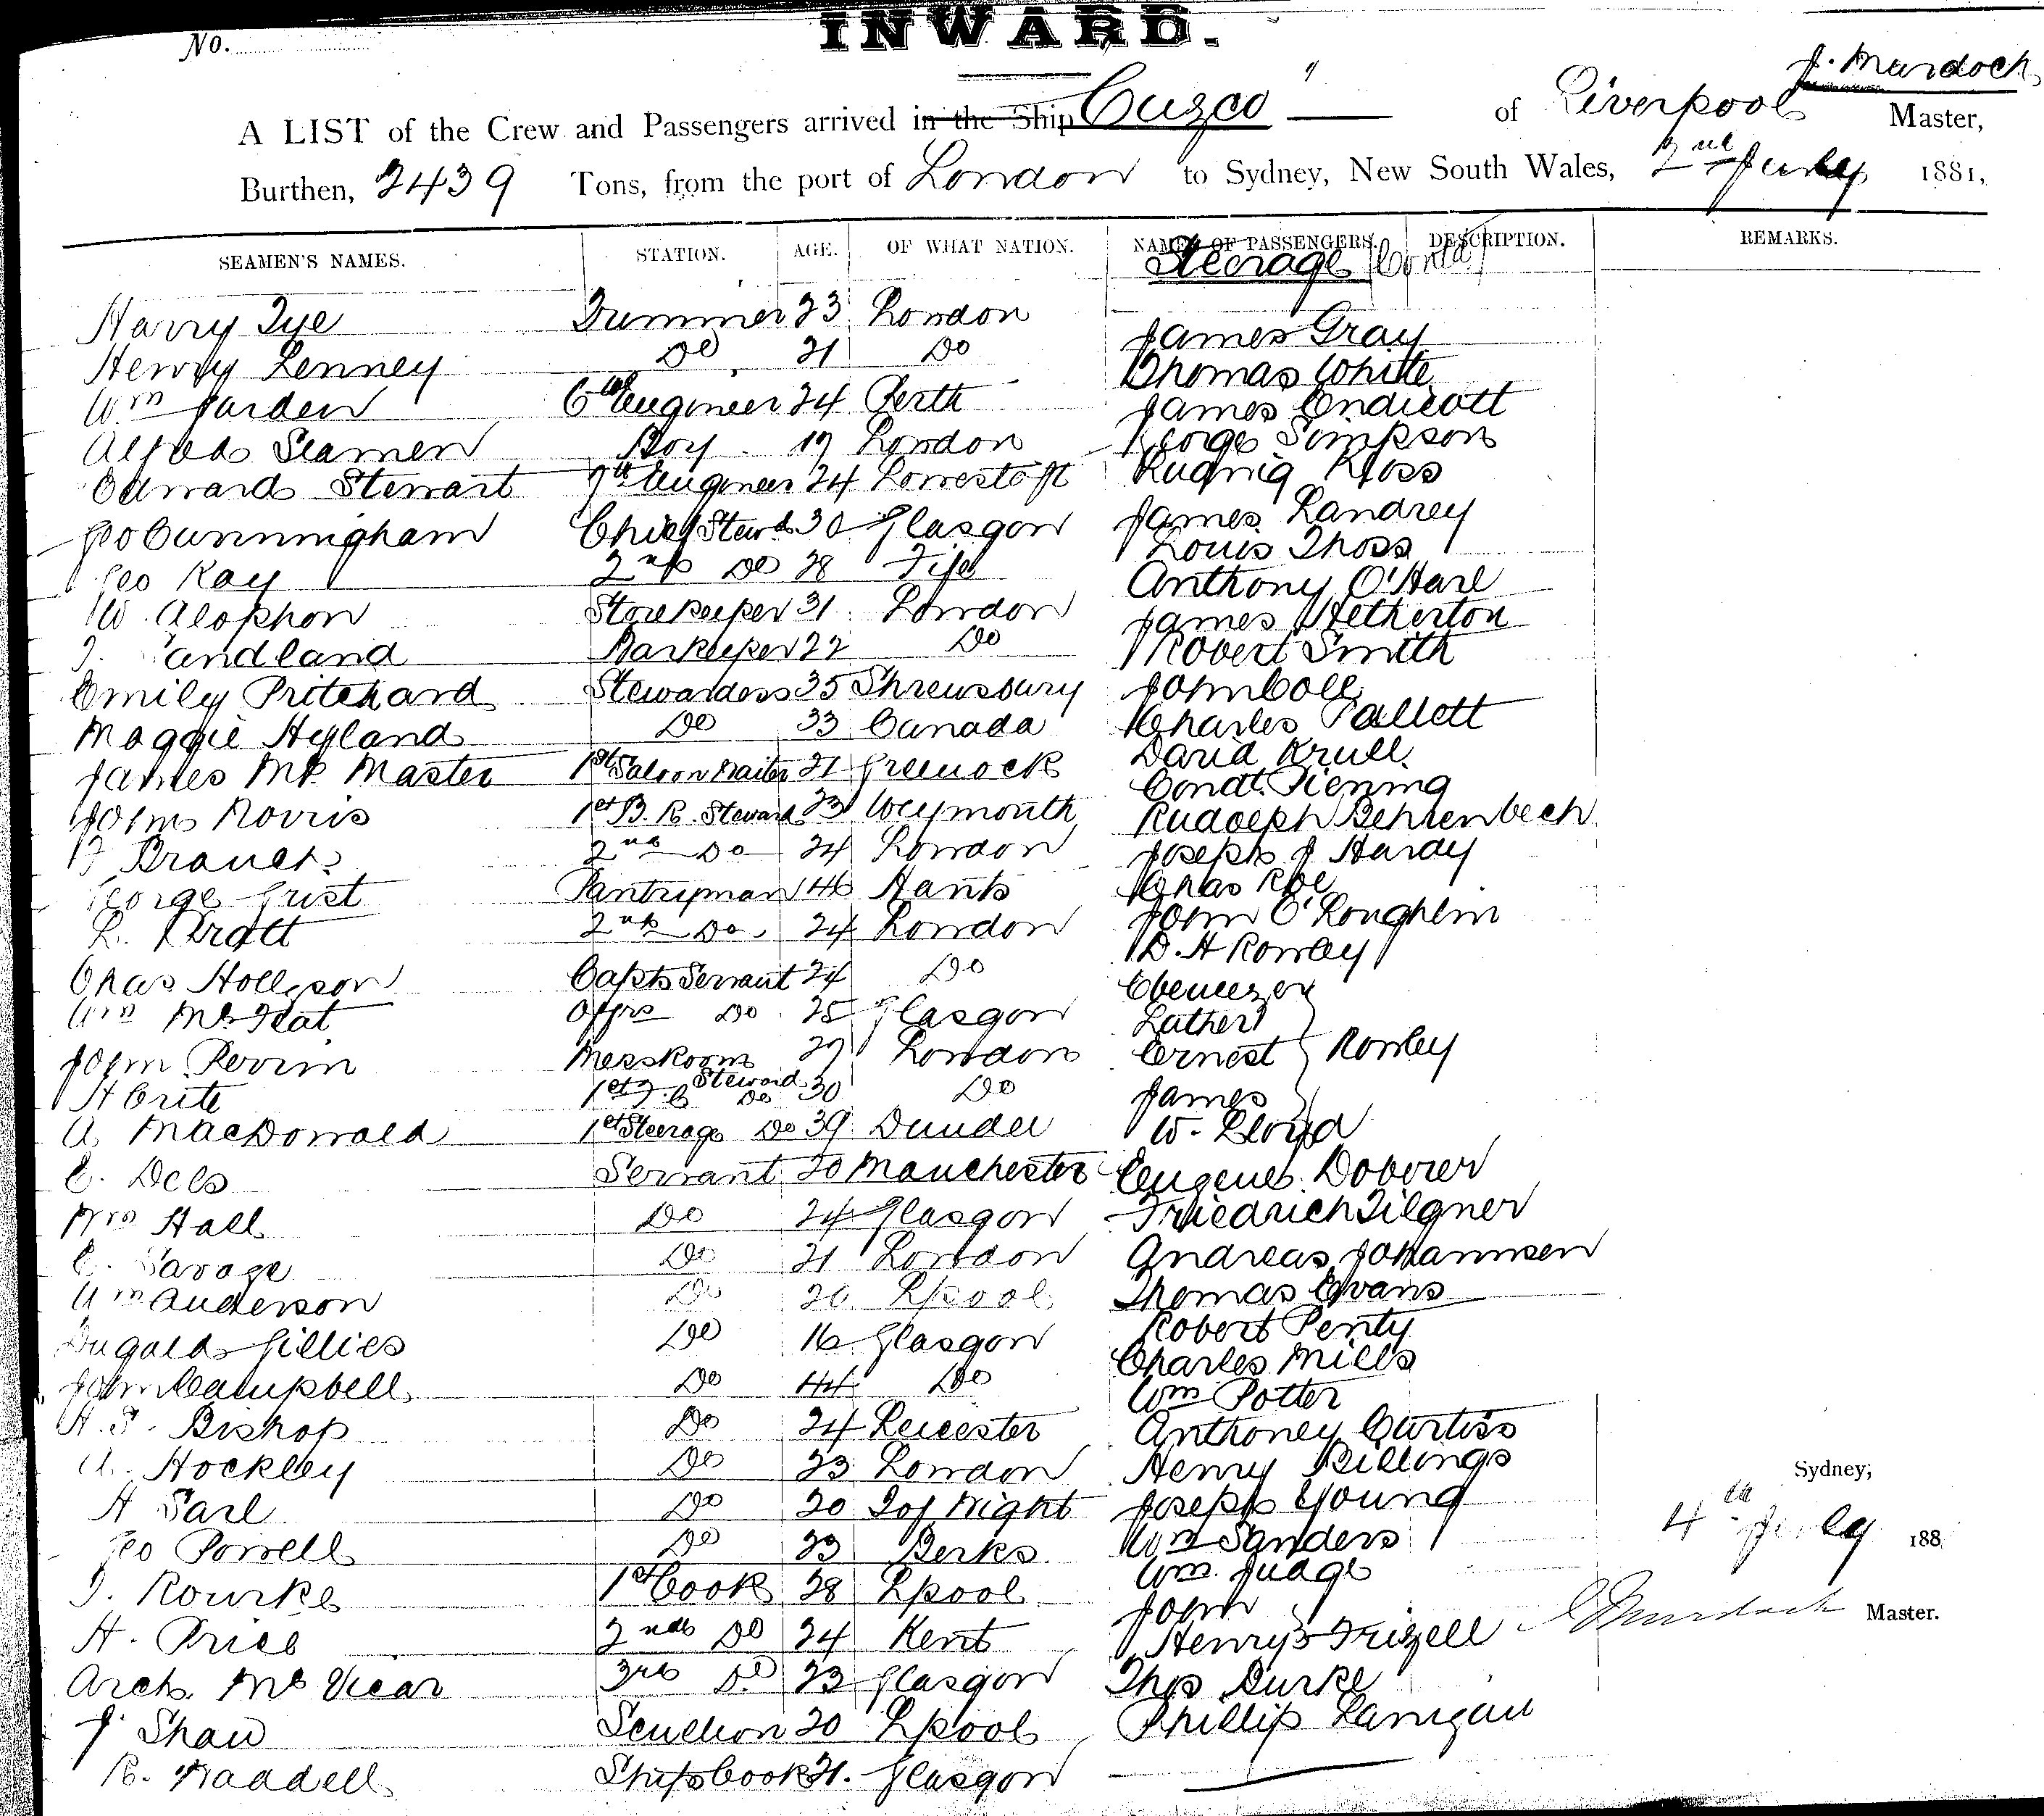 INWARD.
No.
J. Murdoch
A LIST of the Crew and Passengers arrived in the Ship Cuzco " of Liverpool Master,
Burthen, 2439 Tons, from the port of London to Sydney, New South Wales, 2nd July 1881,
SEAMEN'S NAMES. STATION. AGE. OF WHAT NATION. NAMES OF PASSENGERS. DESCRIPTION. REMARKS.
Steerage Contd
Harry Tye 23 London James Gray
Henry Lenney Do 21 Do Thomas White
Wm Jarden 6th Engineer 24 Perth James Endicott
Alfred Seamen Boy 19 London George Simpson
Edward Stewart 7th Engineer 24 Lowestoft Ludwig Kloss
Geo Cunningham Chief Stewd 30 Glasgow James Landrey
Geo Kay 2nd Do 28 Fife Louis Thoss
W. Storekeeper 31 London Anthony O'Hare
Barkeeper 22 Do James Hetherton
Robert Smith
Emily Pritchard Stewardess 35 Shrewsbury John Cole
Maggie Hyland Do 33 Canada Charles Pallett
James Mc Master 1st Saloon Waiter 21 Greenock David Krull.
John Norris 1st B. R. Steward 23 Weymouth Rudolph Behrenbech
2nd Do 24 London Joseph J Hardy
George Grist Pantryman 46 Hants Chas Roe
L. Pratt 2nd Do. 24 London John O'Loughlin
D. H Rowley
Chas Capts Servant 24 Do Ebenezer
Wm Offrs Do 25 Glasgow Luther
John Perrin Messroom Steward 29 London Ernest Rowley
H 1st Do 30 Do James
A. MacDonald 1st Steerage Do 39 Dundee W. Lloyd
E. Servant 20 Manchester Eugene Doborer
Wm Hall Do 24 Glasgow Friedrich Tilgner
C. Savage Do 21 London Andreas Johannsen
Wm Anderson Do 20 Lpool Thomas Evans
Dugald Gillies Do 16 Glasgow Robert Penty
John Campbell Do 44 Do Charles Mills
Wm Potter
H. J. Bishop Do 24 Leicester Anthoney Curtiss
A. Hockley Do 23 London Henry Billings
Sydney,
H Sarl Do 20 I of Wight Joseph Young
4th July 188
Geo Powell Do 23 Berks Wm Sanders
T. Rourke 1st Cook 28 Lpool Wm. Judge
John
J Murdoch Master.
H. Price 2nd Do 24 Kent Henry Frizell
Arch. Mc Vicar 3rd Do 23 Glasgow Thos Burke
J. Shaw Scullion 20 Lpool Phillip Lanigan
R. Waddell Ships Cook 21. Glasgow